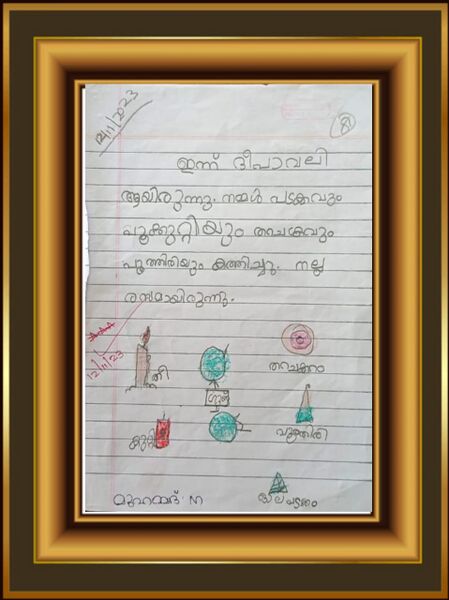 12/11/2023
8
ഇന്ന് ദീപാവലി
ആയിരുന്നു. നമ്മൾ പടക്കവും
പൂക്കുറ്റിയും തറചക്രവും
പൂത്തിരിയും കത്തിച്ചു. നല്ല
രസമായിരുന്നു.
12/11/23
തറചക്രം
തിരി
കുറ്റി
മുഹമ്മദ് N